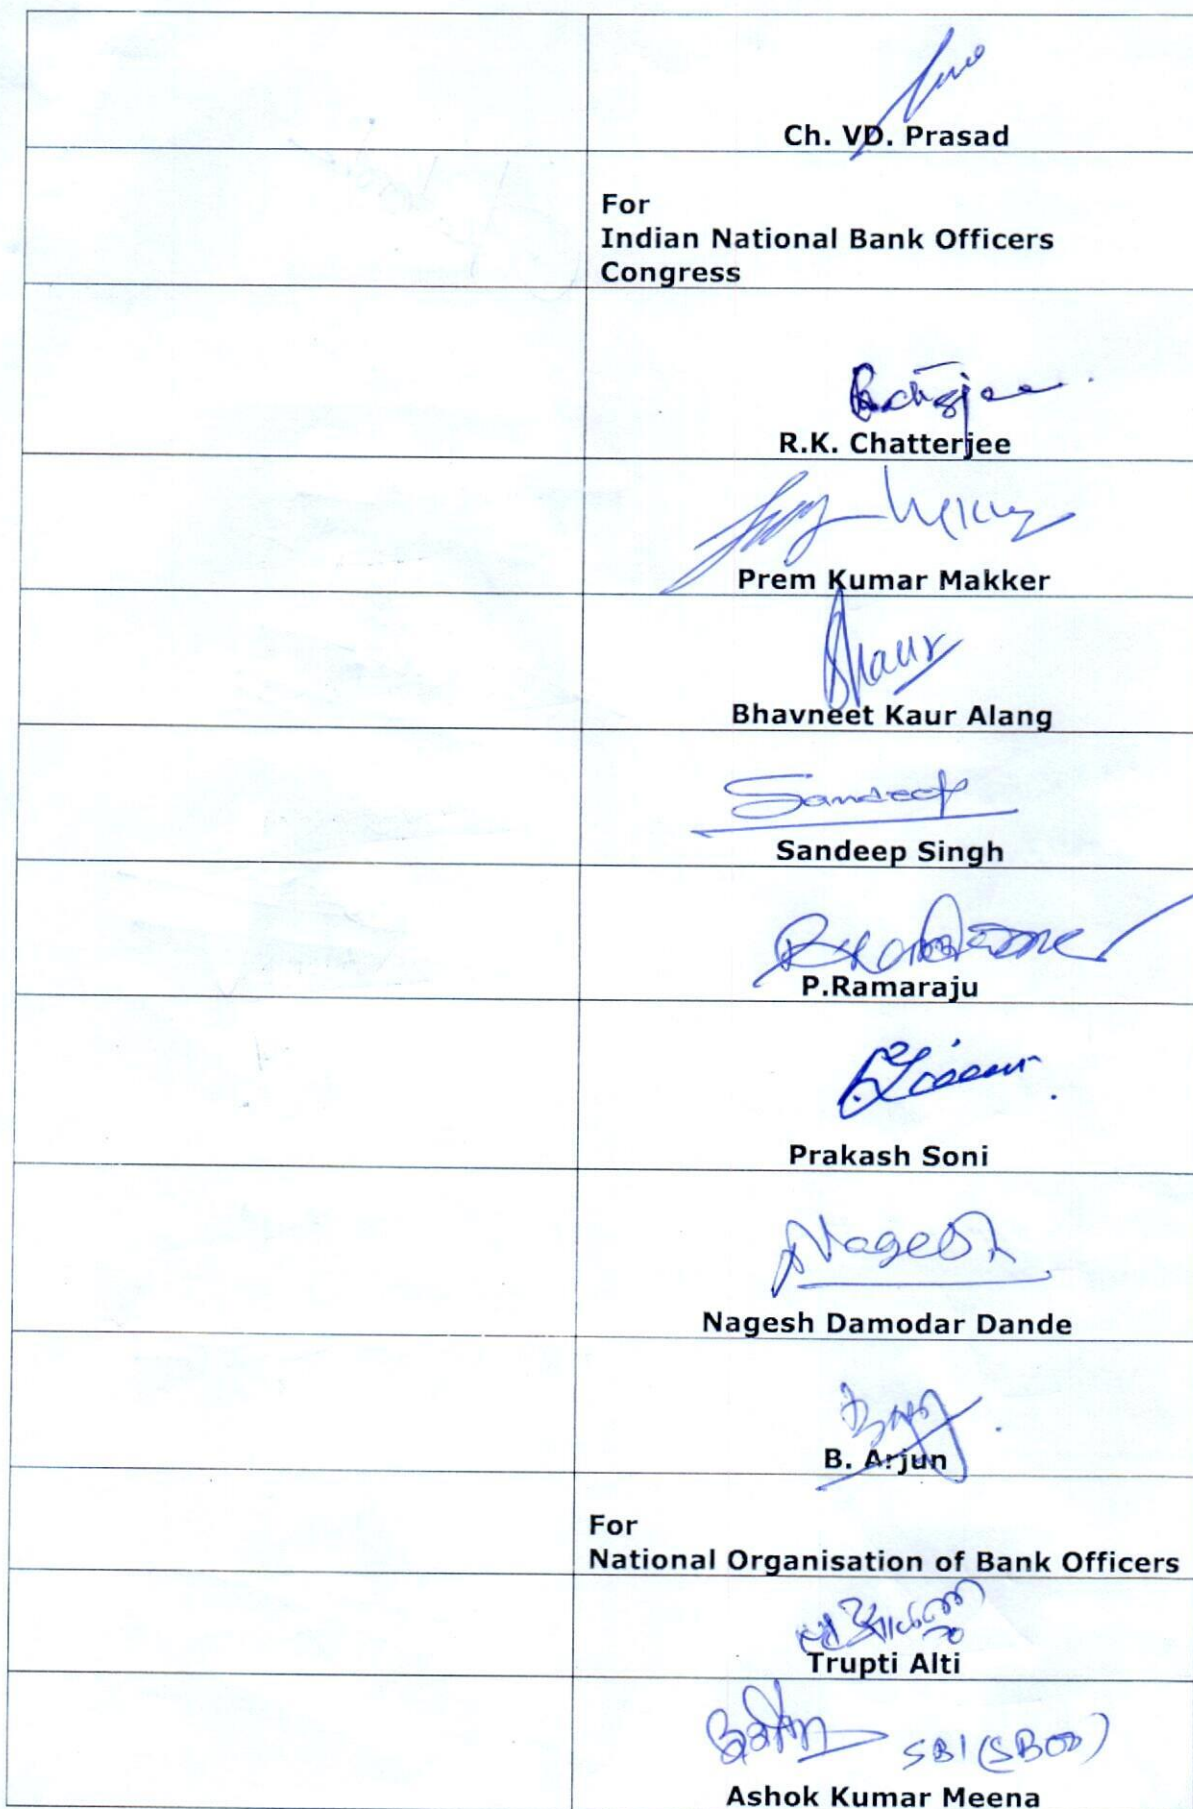 Ch. VD. Prasad
For
Indian National Bank Officers
Congress
R.K. Chatterjee
Prem Kumar Makker
Bhavneet Kaur Alang
Sandeep
Sandeep Singh
P.Ramaraju
Prakash Soni
Nagesh
Nagesh Damodar Dande
B. Arjun
For
National Organisation of Bank Officers
Trupti Alti
SBI
Ashok Kumar Meena